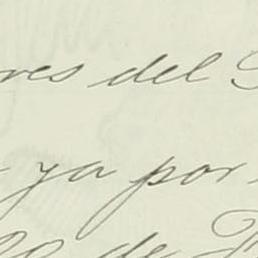 res del
ya por
de